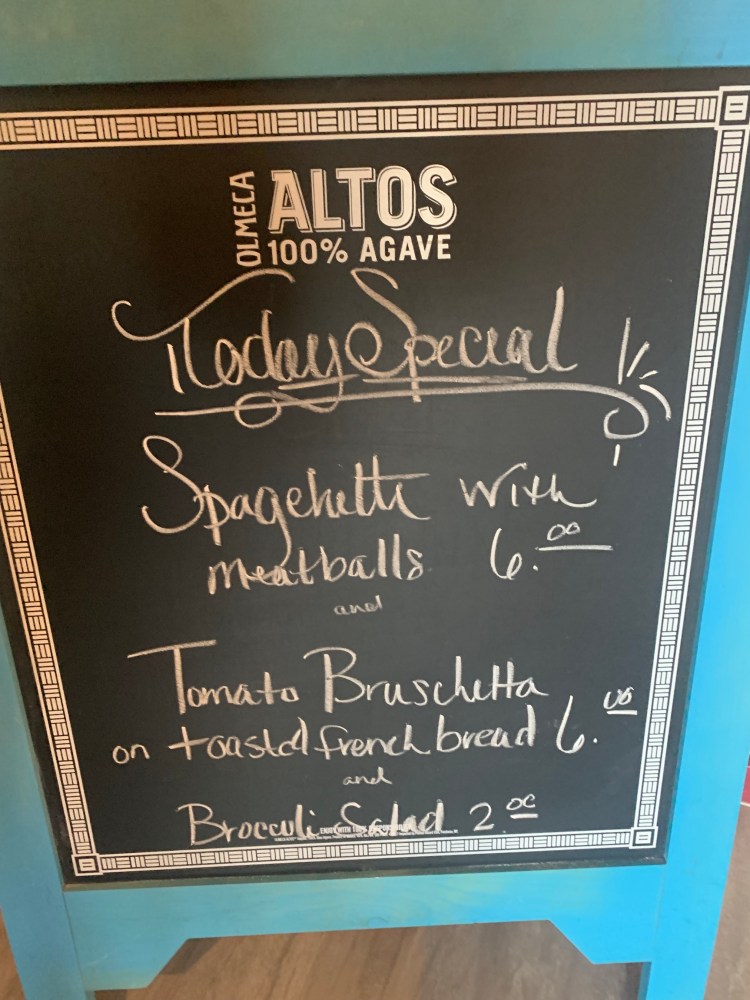 OLMECA
ALTOS
100% AGAVE
Today Special
Spagehetti with
meatballs 6.00
and
Tomato Bruschetta
on toasted french bread 6.00
and
Broccoli Salad 2 00